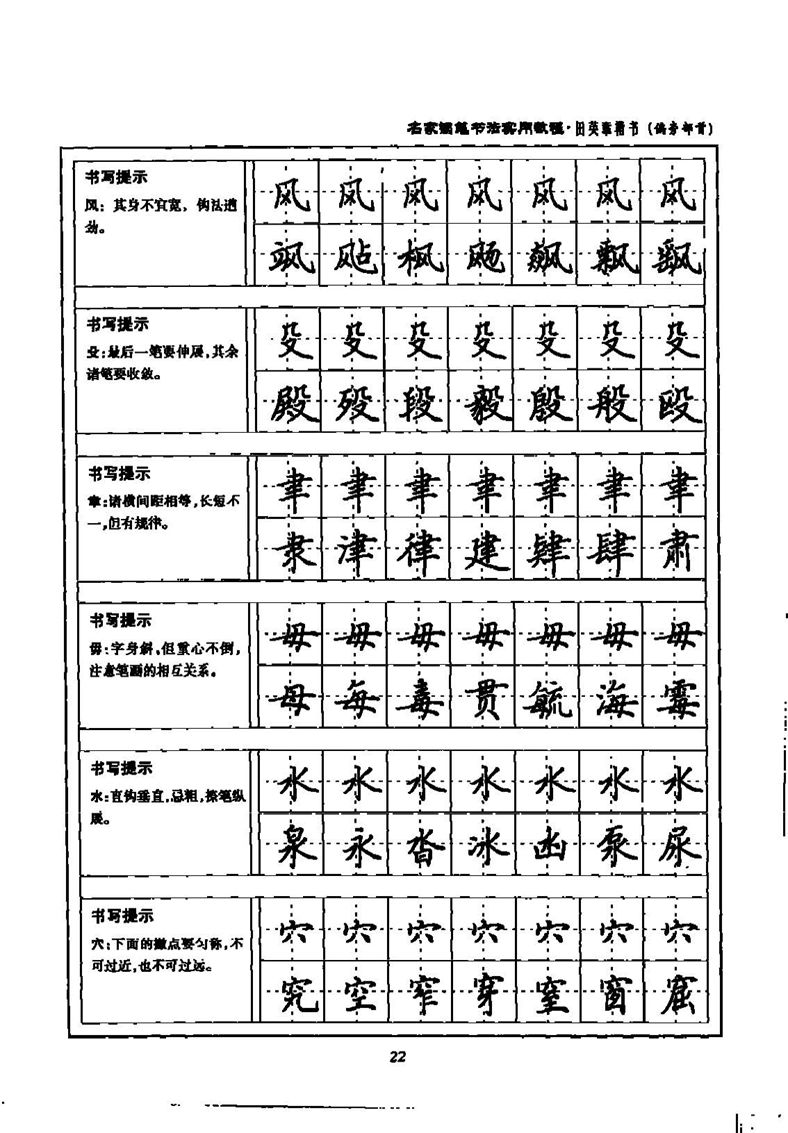 名家钢笔书法实用教程·田英章楷书（偏旁部首）
书写提示
风：其身不宜宽，钩法遒
劲。
风 风 风 风 风 风 风
飒 飐 枫 飏 飙 飘 飘
书写提示
殳:最后一笔要伸展,其余
诸笔要收敛。
殳 殳 殳 殳 殳 殳 殳
殿 殁 段 毅 殷 般 殴
书写提示
聿:诸横间距相等,长短不
一,但有规律。
聿 聿 聿 聿 聿 聿 聿
隶 津 律 建 肄 肆 肃
书写提示
毋:字身斜,但重心不倒,
注意笔画的相互关系。
毋 毋 毋 毋 毋 毋 毋
母 每 毒 贯 毓 海 霉
书写提示
水:直钩垂直,忌粗,捺笔纵
展。
水 水 水 水 水 水 水
泉 永 沓 冰 凼 泵 尿
书写提示
穴:下面的撇点要匀称,不
可过近,也不可过远。
穴 穴 穴 穴 穴 穴 穴
究 空 窄 穿 室 窗 窟
22